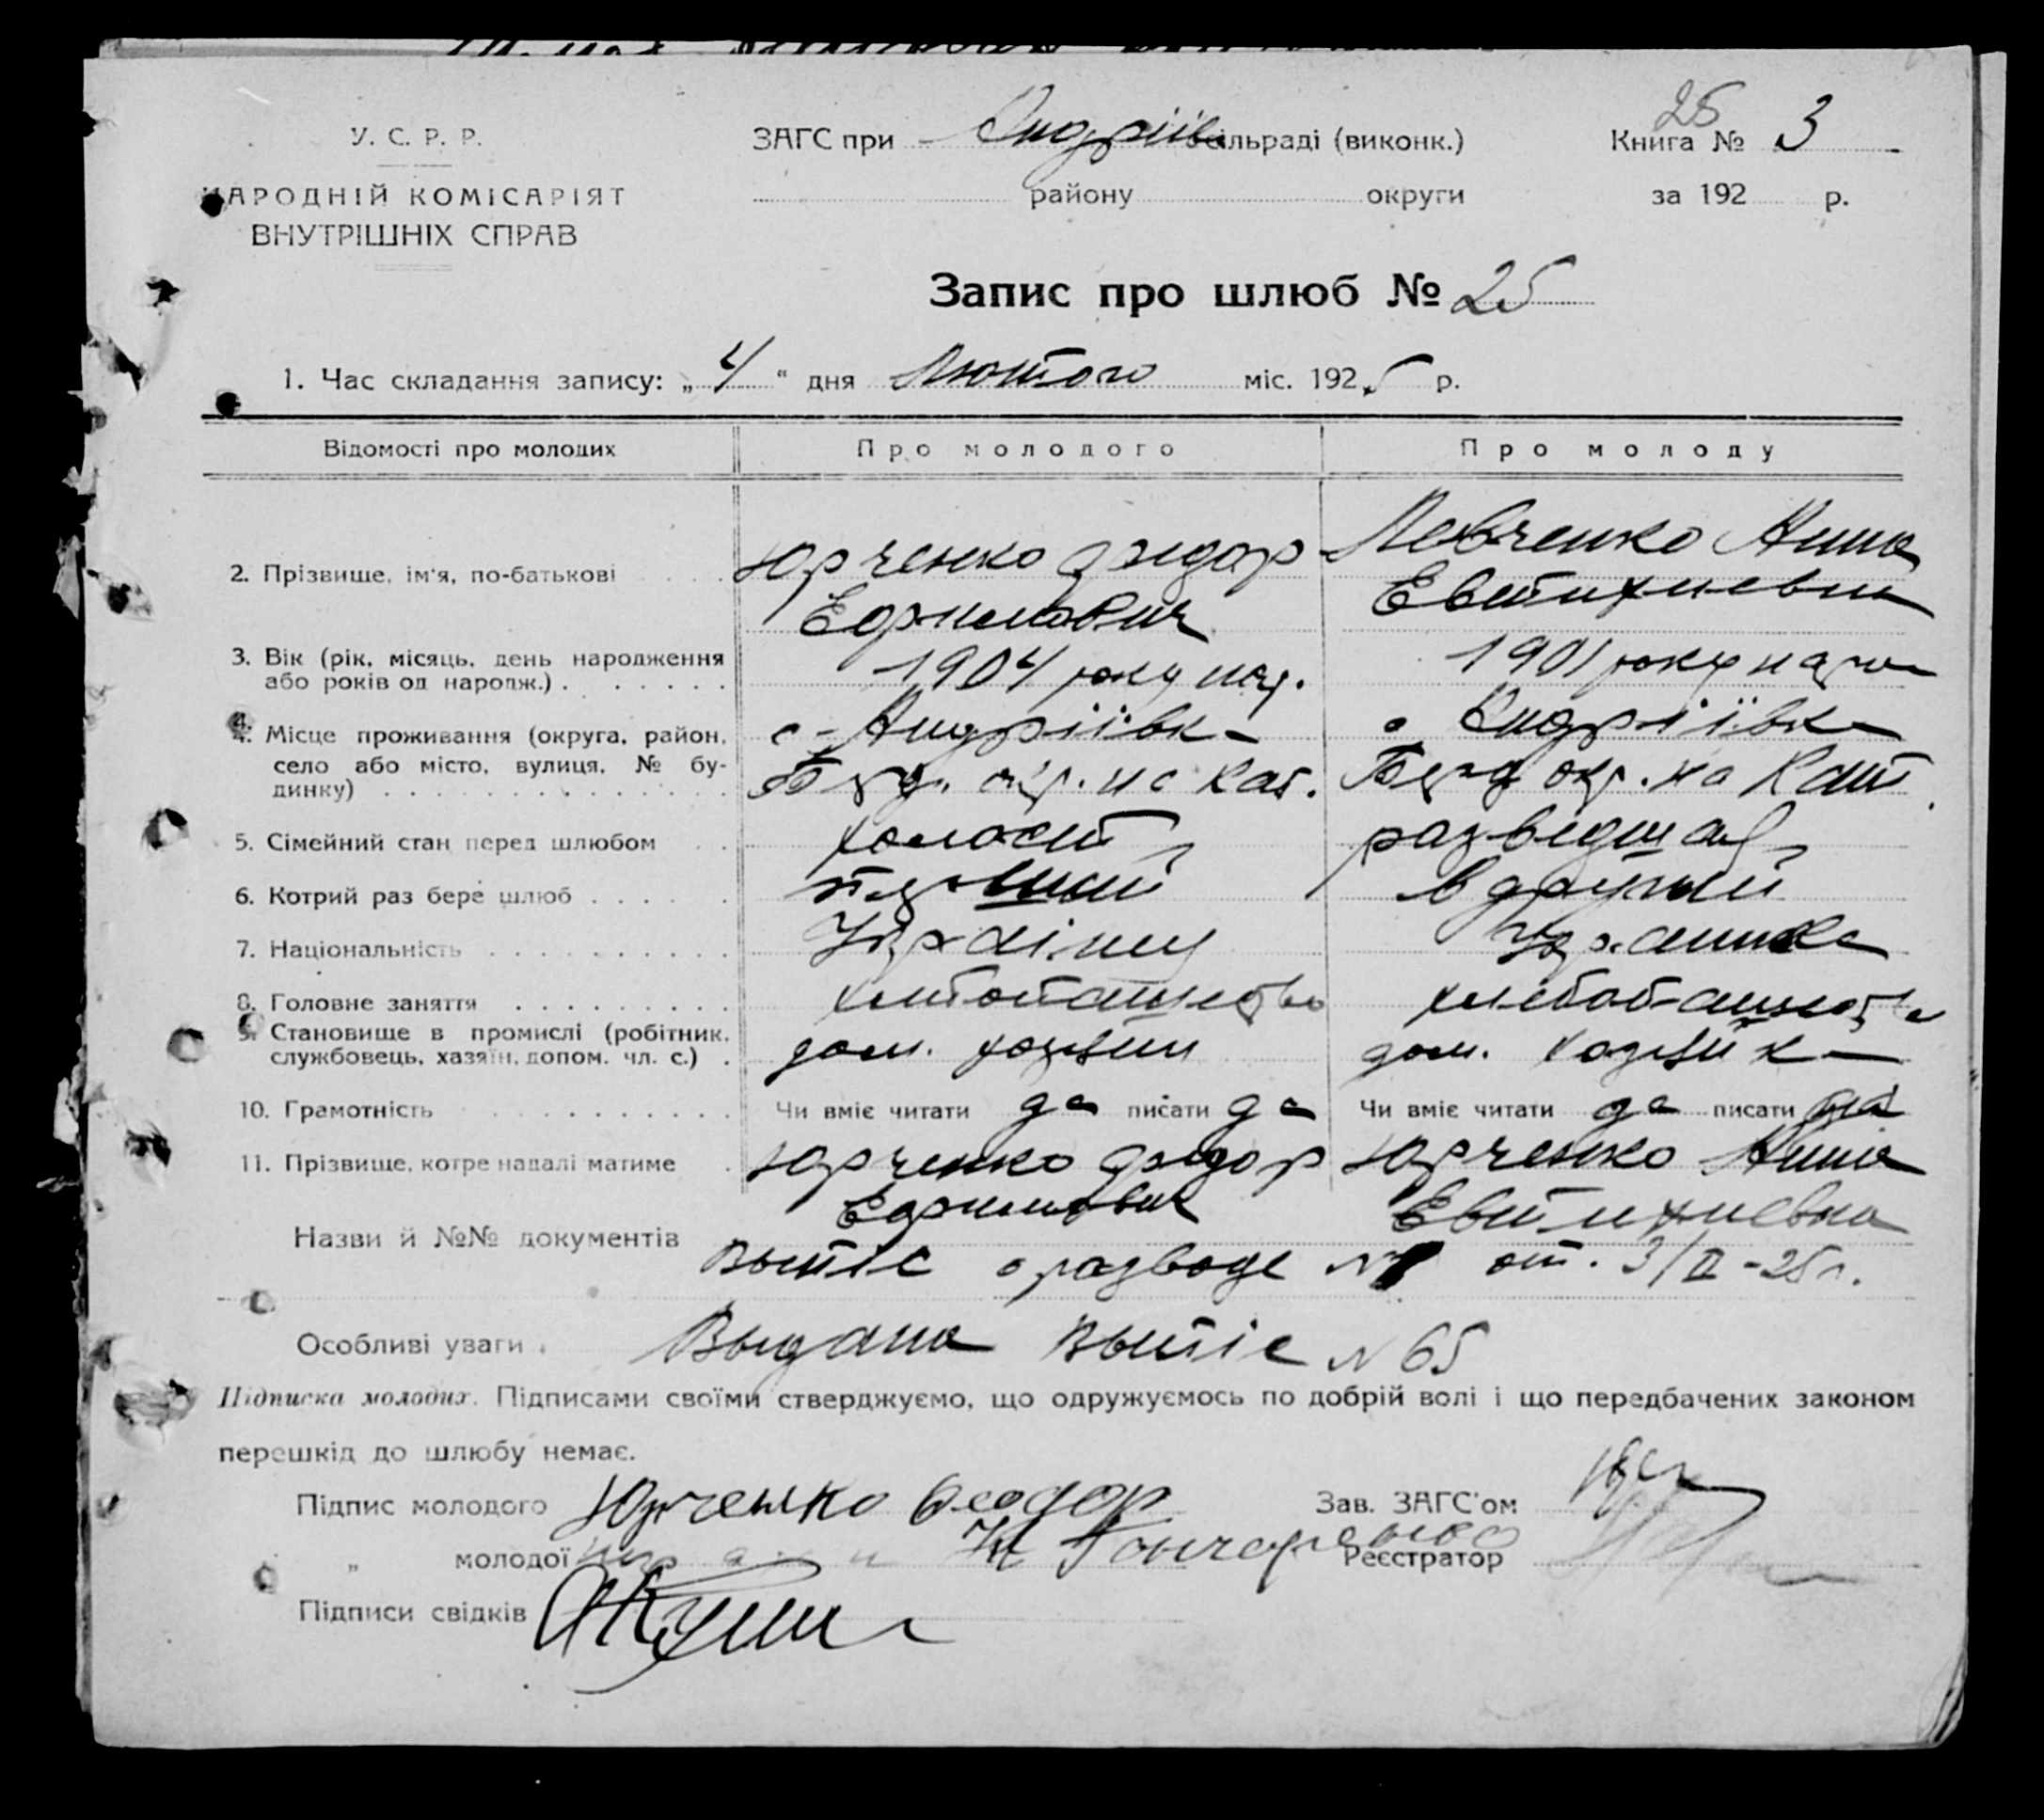 У. С. Р. Р.
НАРОДНІЙ КОМІСАРІЯТ
ВНУТРІШНІХ СПРАВ
ЗАГС при Андріїв сільраді (виконк.)
району округи
25
Книга № 3
за 192 р.
Запис про шлюб № 25
1. Час складання запису: „4" дня Лютого міс. 1925 р.
Відомості про молодих Про молодого Про молоду
2. Прізвище, ім'я, по-батькові Юрченко Федор Левченко Анна
Ефимович Евтихиевна
3. Вік (рік, місяць, день народження або років од народж.) 1904 року нар. 1901 року народ
4. Місце проживання (округа, район, село або місто, вулиця, № будинку) с. Андріївка с Андріївка
Берд. окр. на Кат. Берд окр. на Кат
5. Сімейний стан перед шлюбом холост разведшая
6. Котрий раз бере шлюб первый в другий
7. Національність Українц Украинка
8. Головне заняття хлібопашество хлебопашество
9. Становище в промислі (робітник, службовець, хазяїн, допом. чл. с.) дом. хозяин дом. хозяйка
10. Грамотність Чи вміє читати да писати да Чи вміє читати да писати да
11. Прізвище, котре надалі матиме Юрченко Федор Юрченко Анна
Ефимович Евтихиевна
Назви й №№ документів Выпіс о разводе № от. 3/II-25 г.
Особливі уваги Выдана Выпіс N 65
Підписка молодих. Підписами своїми стверджуємо, що одружуємось по добрій волі і що передбачених законом
перешкід до шлюбу немає.
Підпис молодого Юрченко Феодор Зав. ЗАГС'ом
„ молодої Гончаренко Реєстратор
Підписи свідків